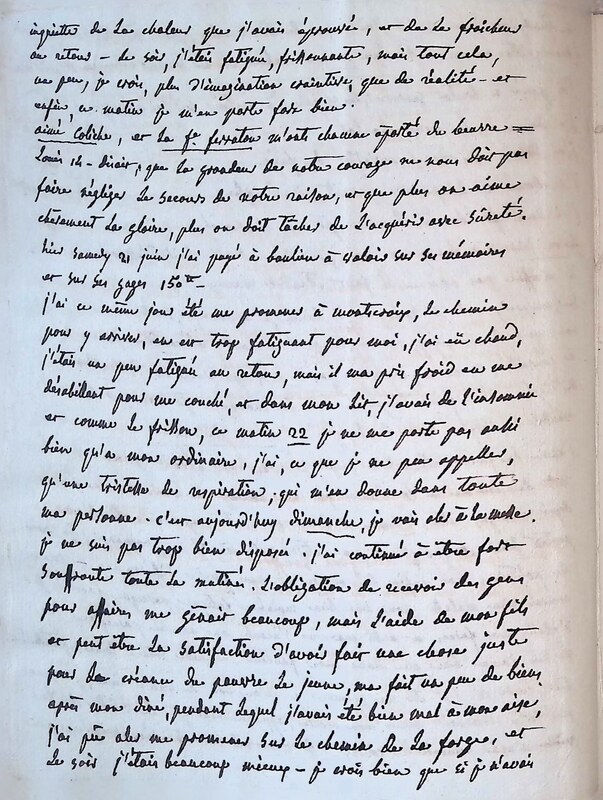 inquiette de la chaleur que j'avais éprouvée, et de la fraicheur
au retour - le soir, j'étais fatiguée, frissonnante, mais tout cela,
un peu, je crois, plus d'imagination craintive, que de réalité - et
enfin, ce matin je m'en porte fort bien.
aimé Coliche, et la fe. ferraton m'ont chacune aporté du beurre =
Louis 14 - disait, que la grandeur de notre courage ne nous doit pas
faire négliger le secours de notre raison, et que plus on aime
chèrement la gloire, plus on doit tâcher de l'acquérir avec sûreté.
hier samedy 21 juin j'ai payé à baulieu à valoir sur ses mémoires
et sur ses gages 150tt -
j'ai ce même jour été me promener à montcroix, le chemin
pour y arriver, en est trop fatiguant pour moi, j'ai eû chaud,
j'étais un peu fatiguée au retour, mais il m'a pris froid en me
désabillant pour me couché, et dans mon lit, j'avais de l'insomnie
et comme le frisson, ce matin 22 je ne me porte pas aussi
bien qu'a mon ordinaire, j'ai, ce que je ne peu appeller,
qu'une tristesse de respiration, qui m'en donne dans toute
ma personne. c'est aujourd'huy dimanche, je vais aler à la messe.
je ne suis pas trop bien disposée. j'ai continué à être fort
souffrante toute la matinée. L'obligation de recevoir des gens
pour affaires me gênait beaucoup, mais l'aide de mon fils
et peut être la satisfaction d'avoir fait une chose juste
pour la créance du pauvre le jeune, m'a fait un peu de bien,
après mon diné, pendant lequel j'avais été bien mal à mon aise,
j'ai pûe aler me promener sur le chemin de la forge, et
le soir j'étais beaucoup mieux - je crois bien que si je n'avais